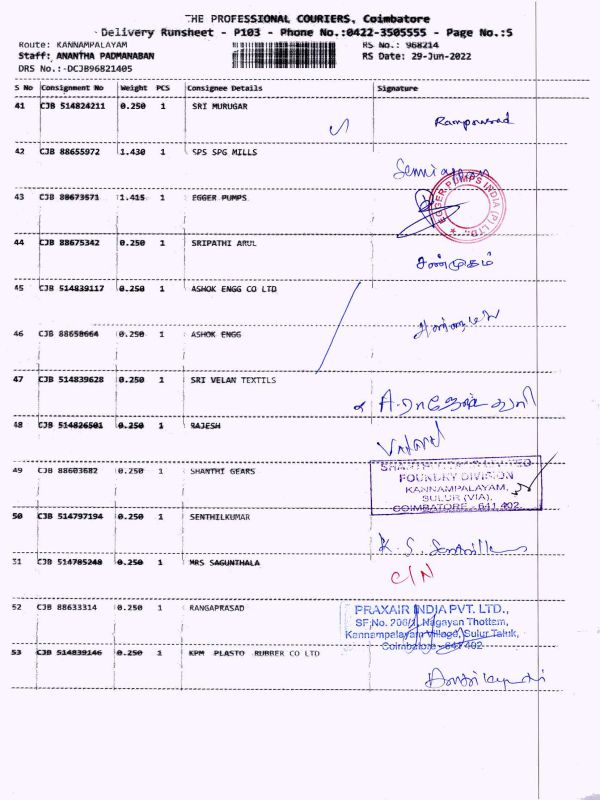 THE PROFESSIONAL COURIERS, Coimbatore
Delivery Runsheet - P103 - Phone No.:0422-3505555 - Page No.:5
Route: KANNAMPALAYAM RS No.: 968214
Staff: ANANTHA PADMANABAN RS Date: 29-Jun-2022
DRS No.:-DCJB96821405
S No Consignment No Weight PCS Consignee Details Signature
41 CJB 514824211 0.250 1 SRI MURUGAR
42 CJB 88655972 1.430 1 SPS SPG MILLS
43 CJB 88673571 1.415 1 EGGER PUMPS
EGGER PUMPS INDIA (P) LTD.
44 CJB 88675342 0.250 1 SRIPATHI ARUL
சண்முகம்
45 CJB 514839117 0.250 1 ASHOK ENGG CO LTD
46 CJB 88658664 0.250 1 ASHOK ENGG
47 CJB 514839628 0.250 1 SRI VELAN TEXTILS
48 CJB 514826501 0.250 1 RAJESH
49 CJB 88603682 0.250 1 SHANTHI GEARS
FOUNDRY DIVISION
KANNAMPALAYAM,
SULUR (VIA),
COIMBATORE - 641 402.
50 CJB 514797194 0.250 1 SENTHILKUMAR
K. S.
31 CJB 514785248 0.250 1 MRS SAGUNTHALA
C/N
52 CJB 88633314 0.250 1 RANGAPRASAD
PRAXAIR INDIA PVT. LTD.,
SF.No. 706/1, Nagayan Thottam,
Kannampalayam Village, Sulur Taluk,
Coimbatore - 641 402
53 CJB 514839146 0.250 1 KPM PLASTO RUBBER CO LTD